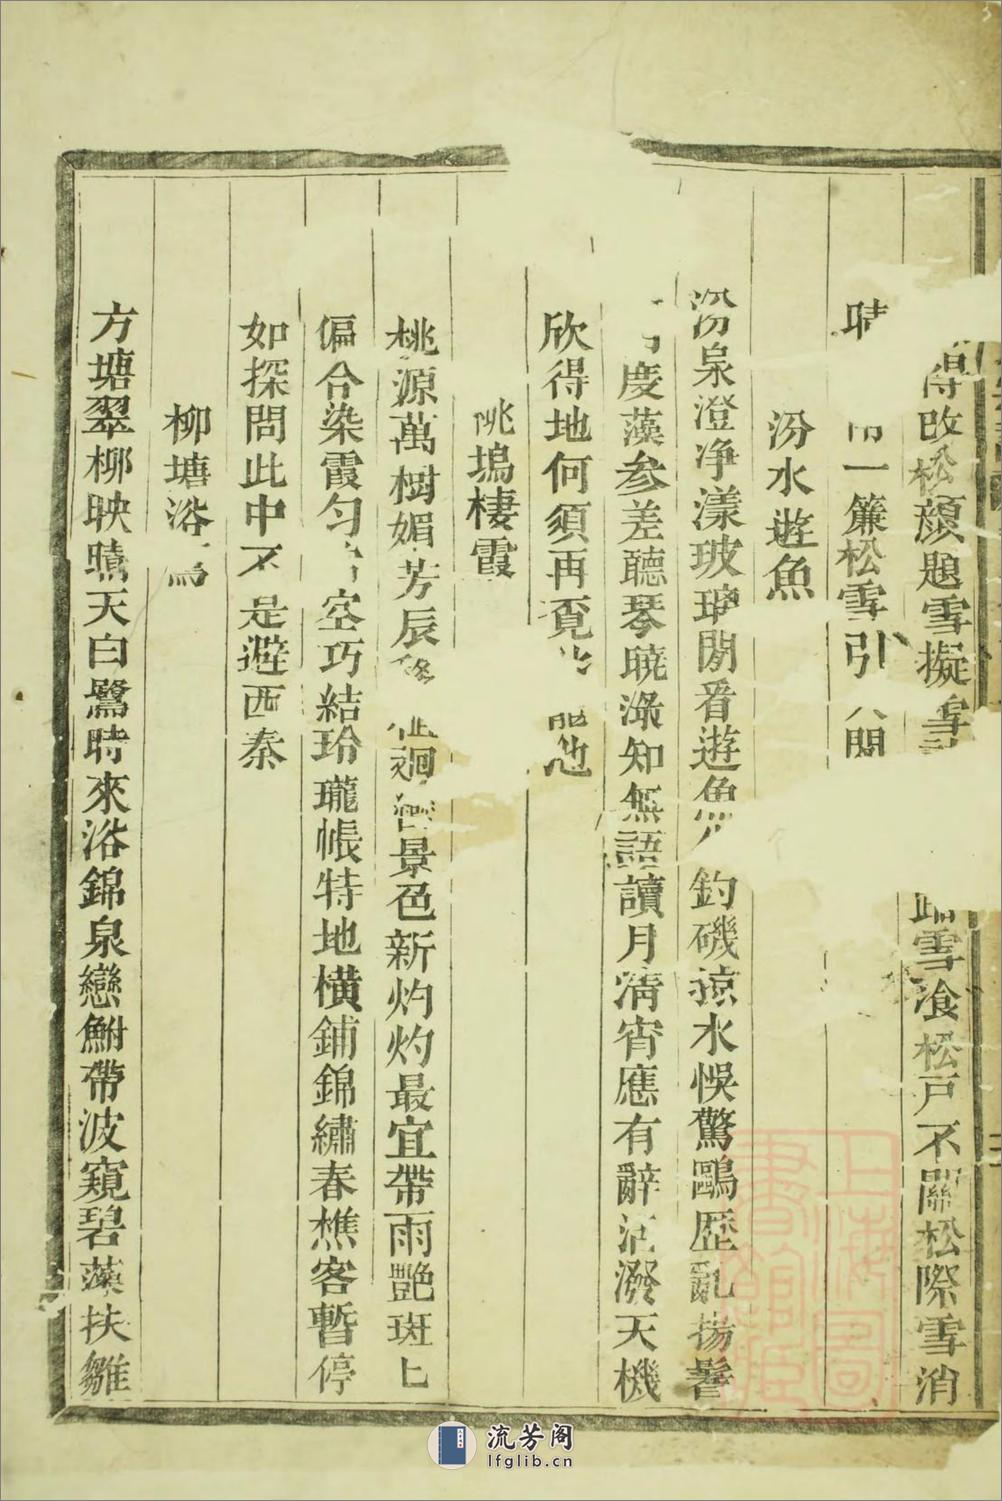 得改松顏題雪擬雪 踏雪飡松戸不關松際雪消
晴 一簾松雪引 閒
汾水遊魚
汾泉澄净漾玻瓈閒看遊魚 釣磯掠水悞驚鷗歷亂揚鬐
慶藻参差聽琴曉淥知無語讀月清宵應有辭活潑天機
欣得地何須再覔 龍池
桃塢棲霞
桃源萬樹媚芳辰 景色新灼灼最宜帶雨艷斑上
偏合染霞勻 空巧結玲瓏帳特地橫鋪錦繡春樵客暫停
如探問此中不是避西秦
柳塘浴鷺
方塘翠柳映晴天白鷺時來浴錦泉戀鮒帶波窺碧藻扶雛
上海圖書館藏
流芳阁
lfglib.cn